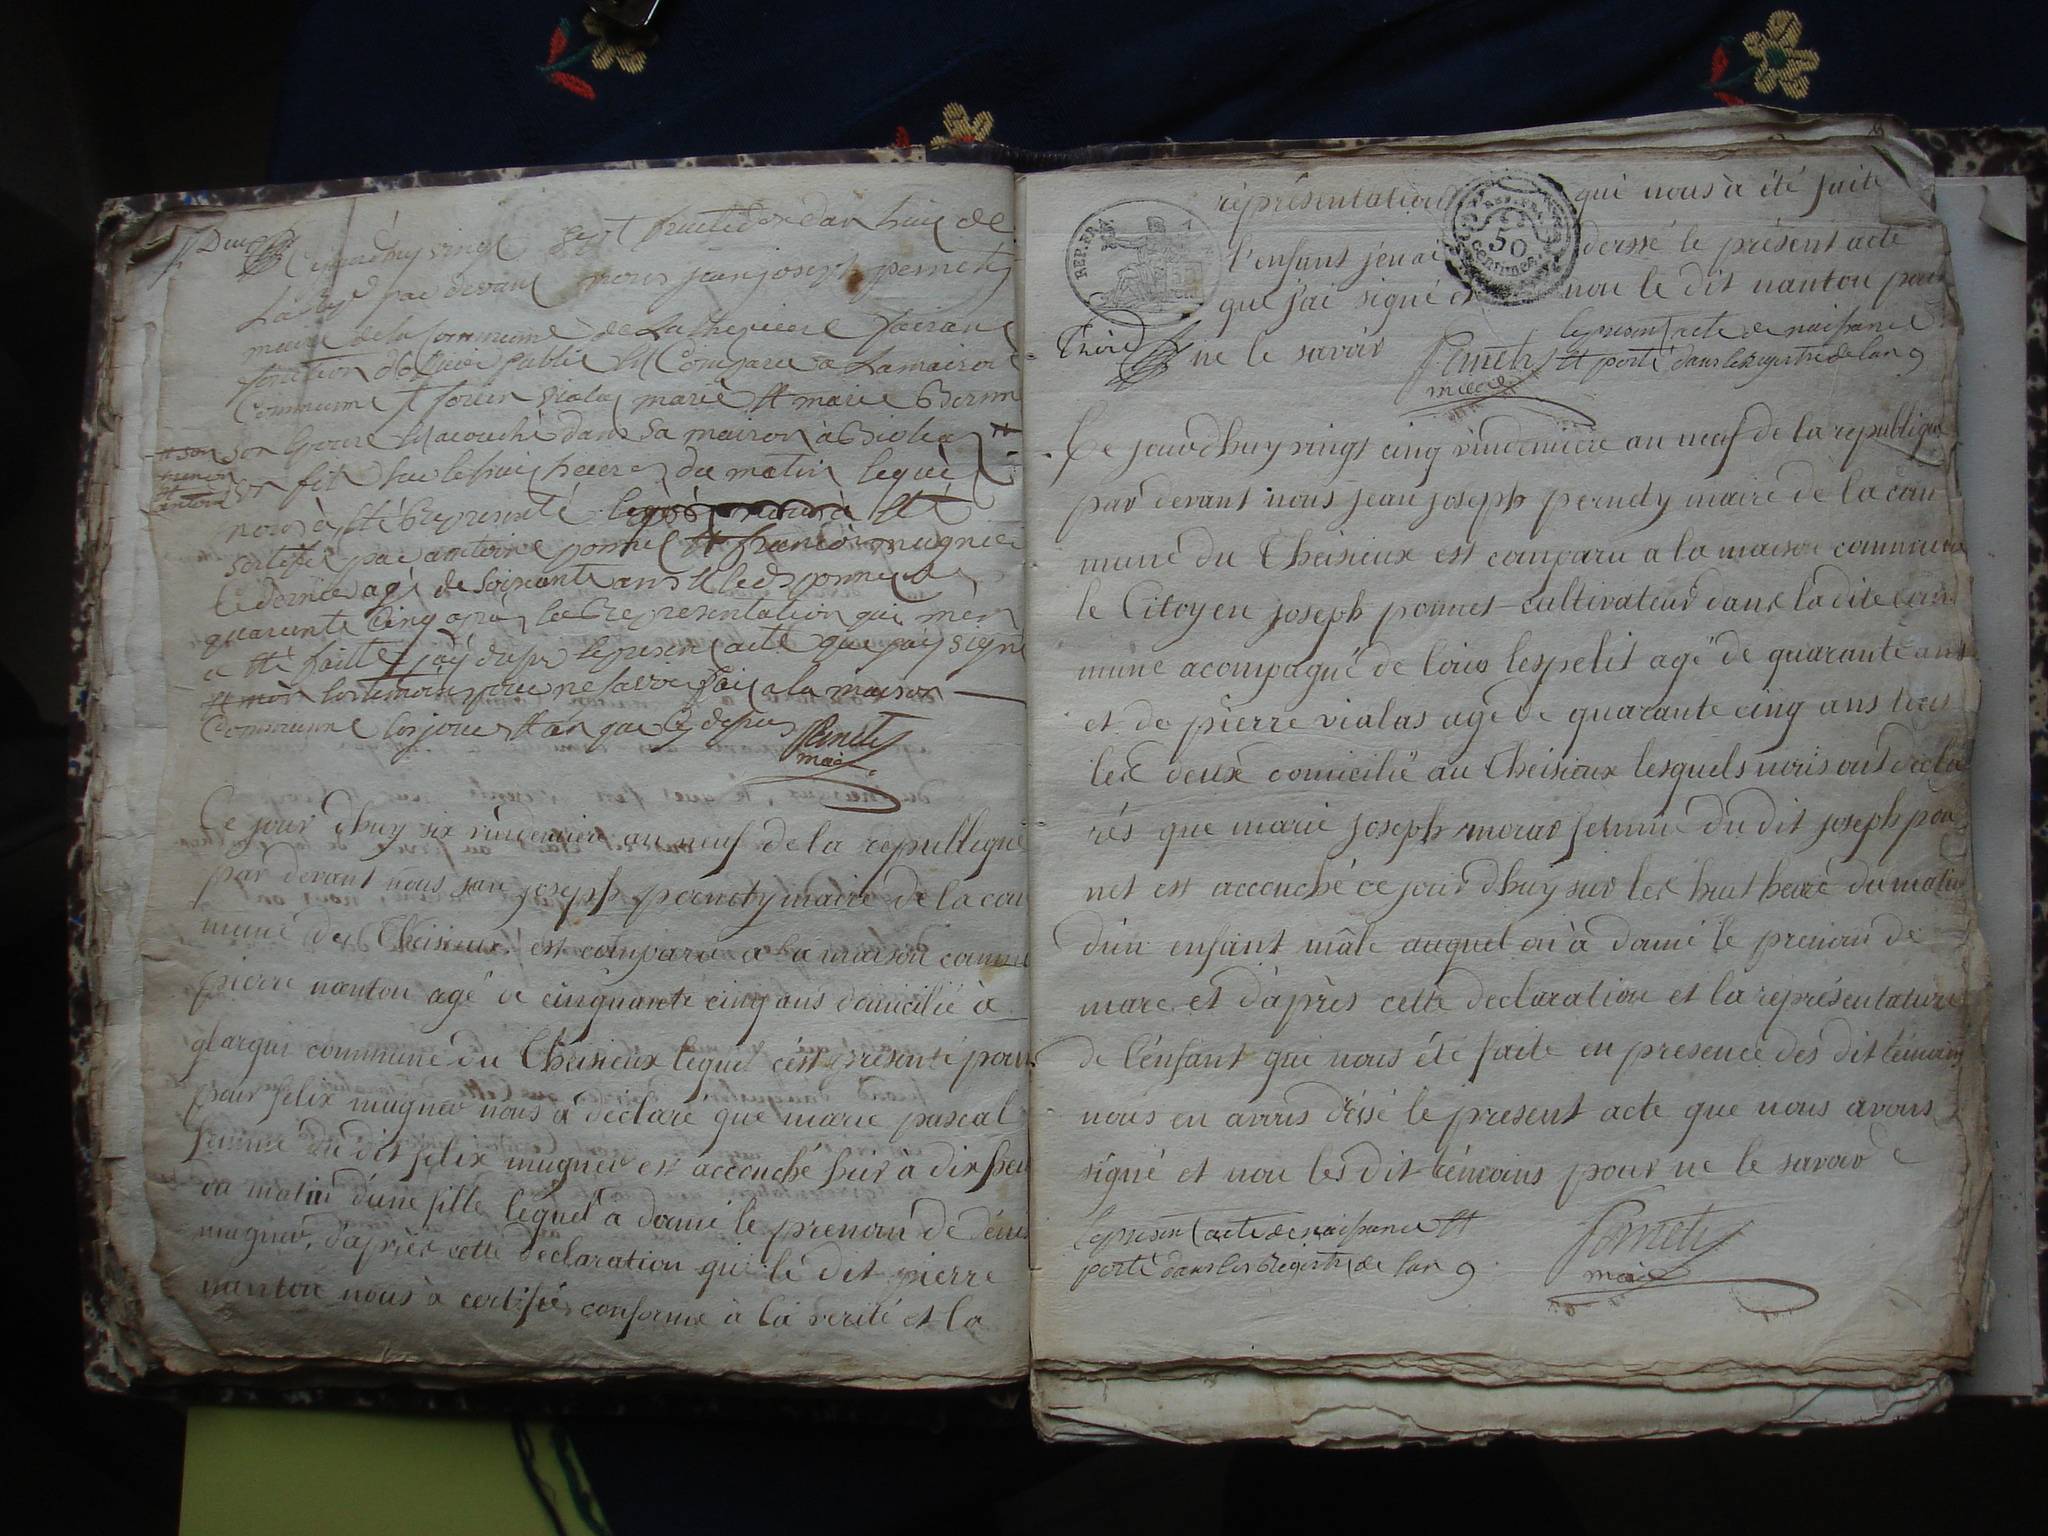 Deu
Ce jourdhuy vingt sept fructidor dan huis de
La rep par devant nous jean joseph pernety
maire de la Commune de fairans
fonction d'officie public est Comparu a La maison
Commune vialas marié et marie
son Epouse est acouché dans sa maison à
et son
prenon
et
antoine
un fils sur les huis heures du matin lequel
nous à été Represente été
sertifié par antoine ponnet et francois mugnier
ce dernier agé de soixante ans et led ponnet de
quarente cinq après la Representation qui m'en
a été faitte j'ay dressé le present acte que j'ay signé
et non les temoins pour ne savoir fais a la maison
Commune les jour et an que cy dessus Pernety
maire
Ce jour dhuy six vindemiere an neuf de la republique
par devant nous jean joseph pernety maire de la com
mune du Theisieux est comparu a la maison commune
pierre nanton agé de cinquante cinq ans domicilié à
glargin commune du Theisieux lequel c'est présenté pour
pour felix mugner nous à déclaré que marie pascal
femme du dit felix mugner est accouché hier à dix heu
du matin d'une fille lequel a donné le prenom de
mugner, d'après cette declaration que le dit pierre
nanton nous à certifié conforme à la verité et la
représentation que nous à été faite
REP. FRA
50
Centimes
l'enfant j'en ai derssé le présent acte
que j'ai signé et non le dit nanton pour
Troi
ne le savoir Pernety le present acte de naissance
maire et porté dans le Registre de lan 9
Ce jourdhuy vingt cinq vindemiere an neuf de la republique
par devant nous jean joseph pernety maire de la com
mune du Theisieux est comparu a la maison commune
le Citoyen joseph ponnet cultivateur dans la dite com
mune acompagné de louis lespelit agé de quarante ans
et de pierre vialas agé de quarante cinq ans tous
les deux domicilié au Theisieux lesquels nous ont décla
rés que marie joseph morar femme du dit joseph pon
net est accouché ce jour dhuy sur les huit heure du matin
d'un enfant mâle auquel on à donné le prenom de
marc et d'après cette declaration et la représentation
de l'enfant qui nous été faite en presence des dit témoins
nous en avons dressé le present acte que nous avons
signé et non les dit témoins pour ne le savoir
le present acte de naissance et
porté dans les Registre de lan 9
Pernety
maire